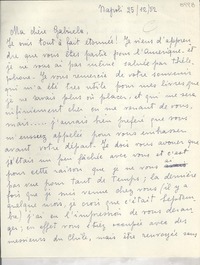 Napoli 25/10/52
Ma chère Gabriela,
Je suis tout à fait étonné! Je viens d'apprendre
que vous êtes partie pour l'Amérique, et
je vous ai pas même saluée par téléphone.
Je vous remercie de votre souvenir
qui m'a été très utile pour mes livres que
je ne savais plus où placer, et qui me sera
chère en me venant de vous,
mais j'aurais bien préféré que vous
m'eussiez appelée pour vous embrasser
avant votre départ. Je dois vous avouer que
j'étais un peu fâchée avec vous et c'est
pour cette raison que je ne vous ai
pas vue pour tant de temps; la dernière
fois que je me venue chez vous (il y a
quelque mois, je crois que c'était Septembre)
j'ai eu l'impression de vous déranger,
en effet vous étiez occupée avec des
messieurs du Chile, mais être renvoyée sans